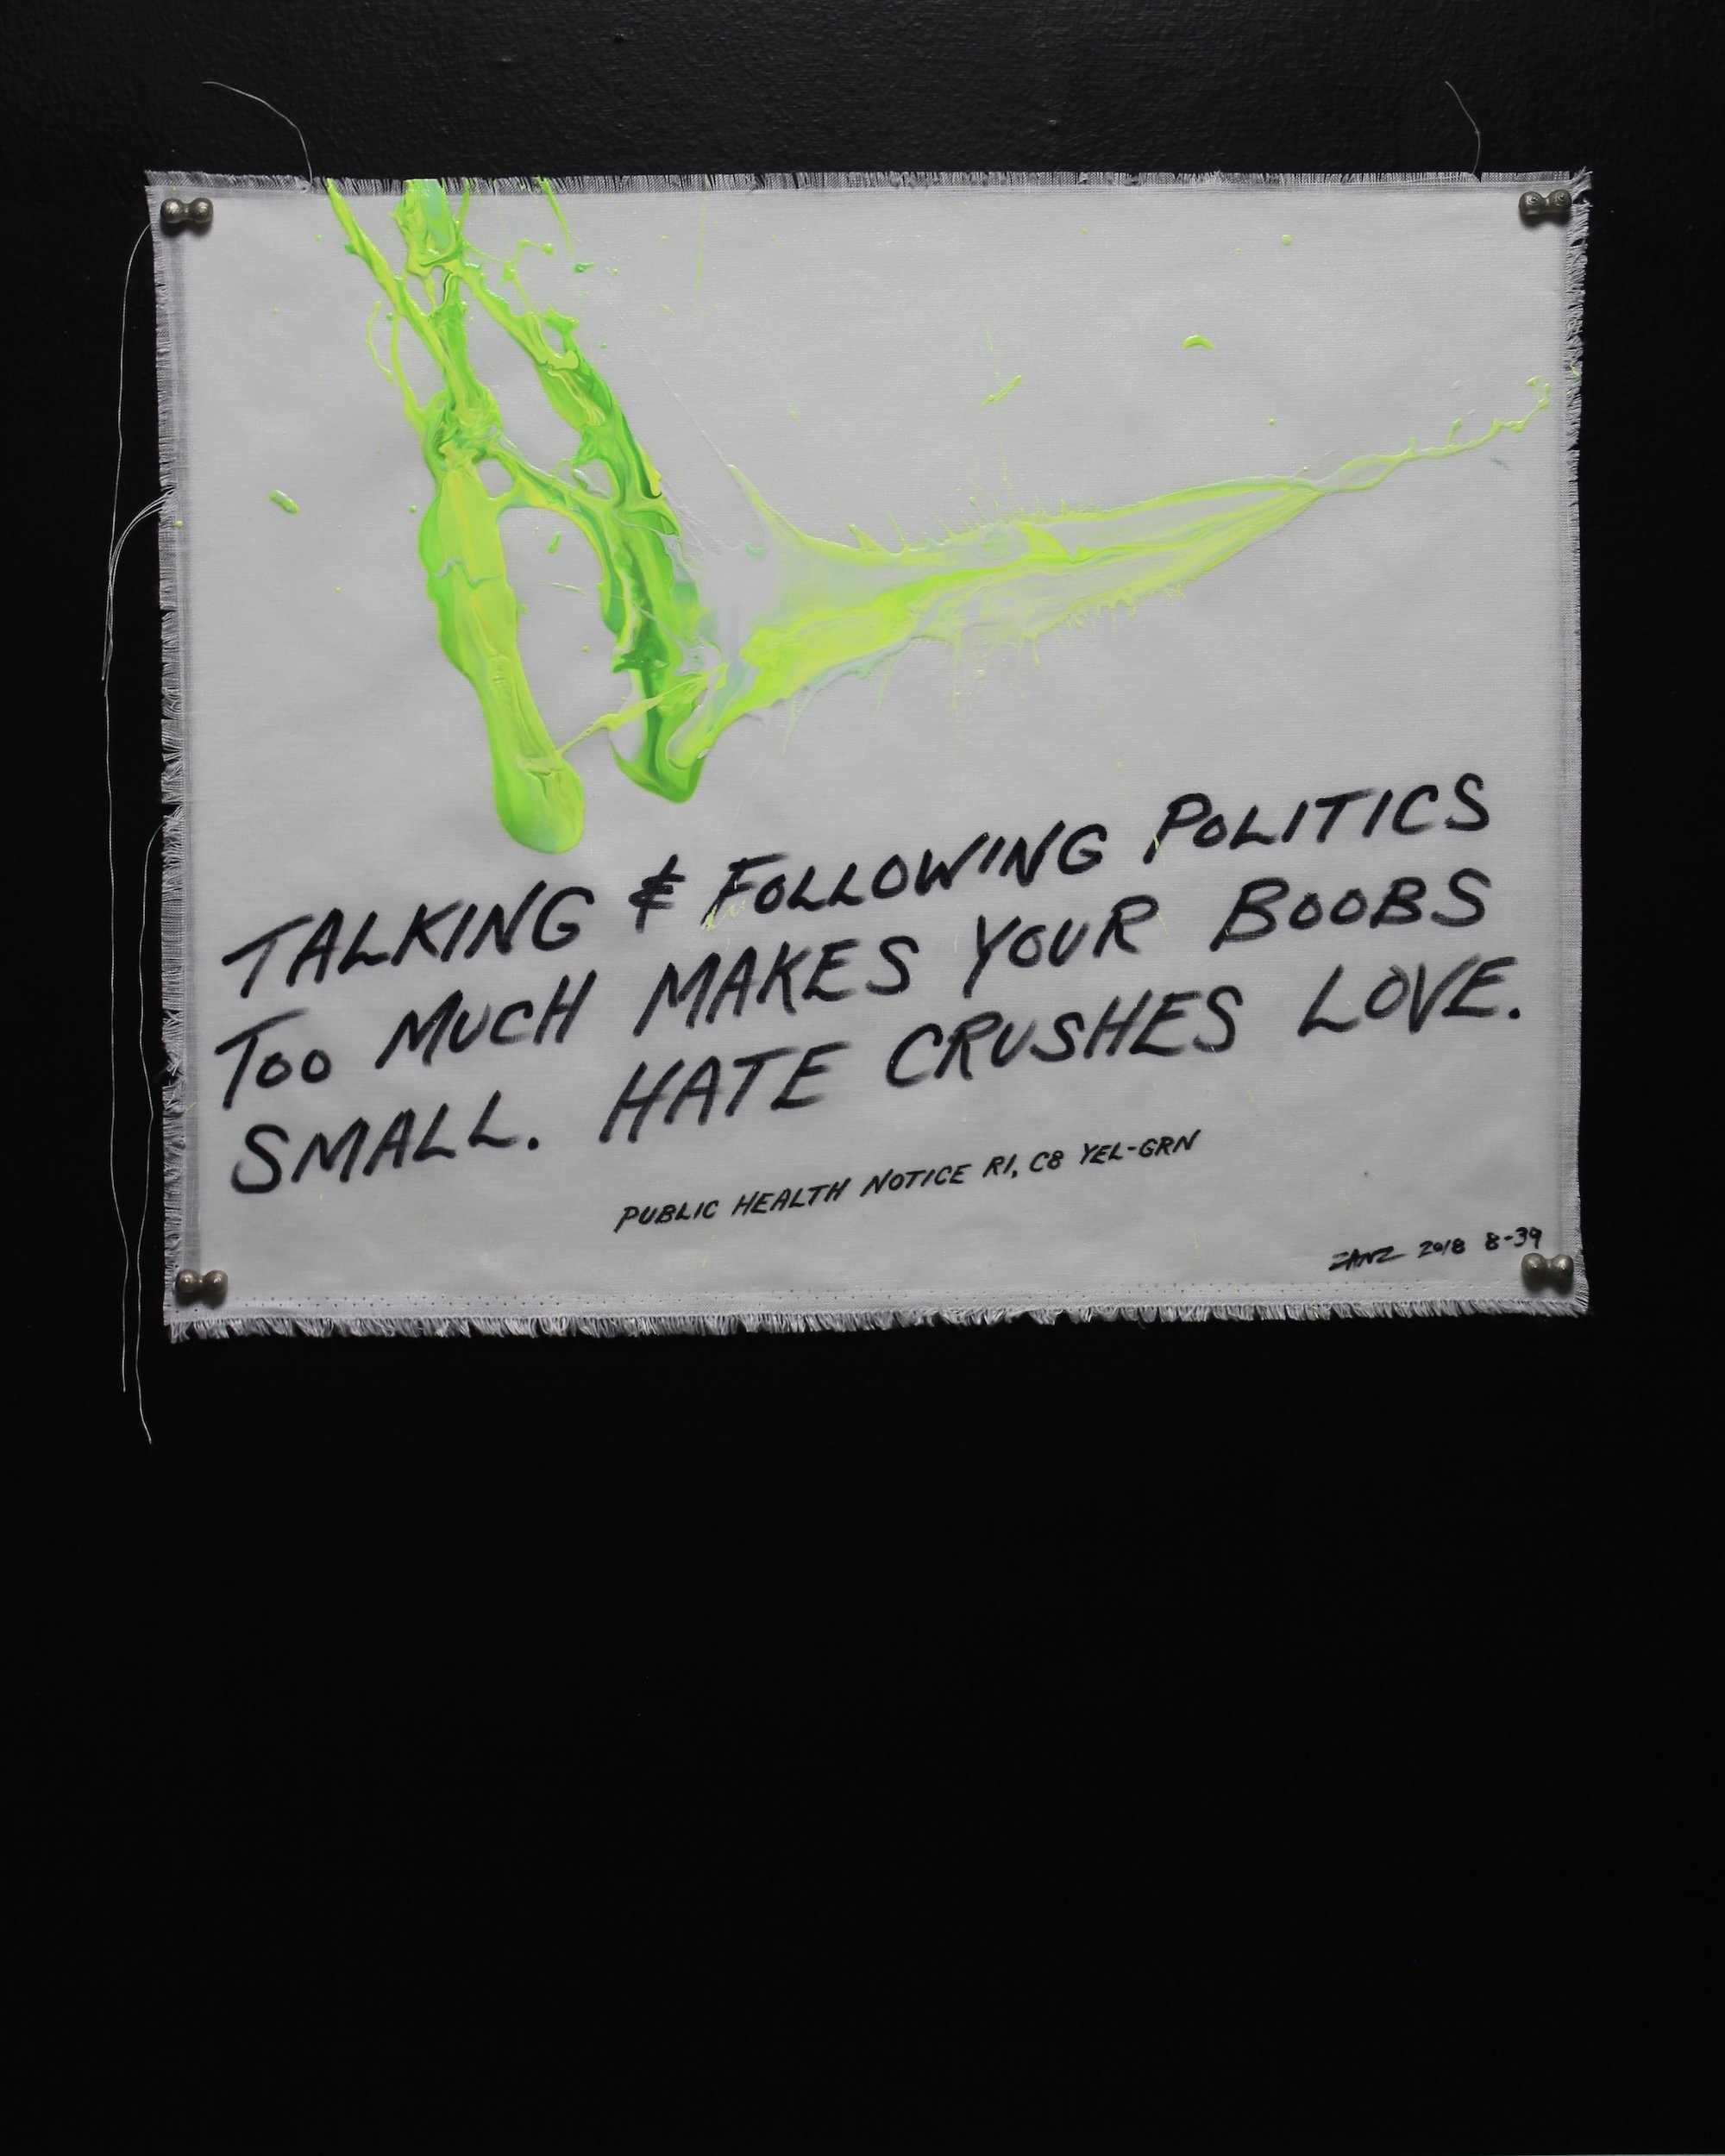 TALKING & FOLLOWING POLITICS
TOO MUCH MAKES YOUR BOOBS
SMALL. HATE CRUSHES LOVE.
PUBLIC HEALTH NOTICE R1, C8 YEL-GRN
ZANZ 2018 8-39